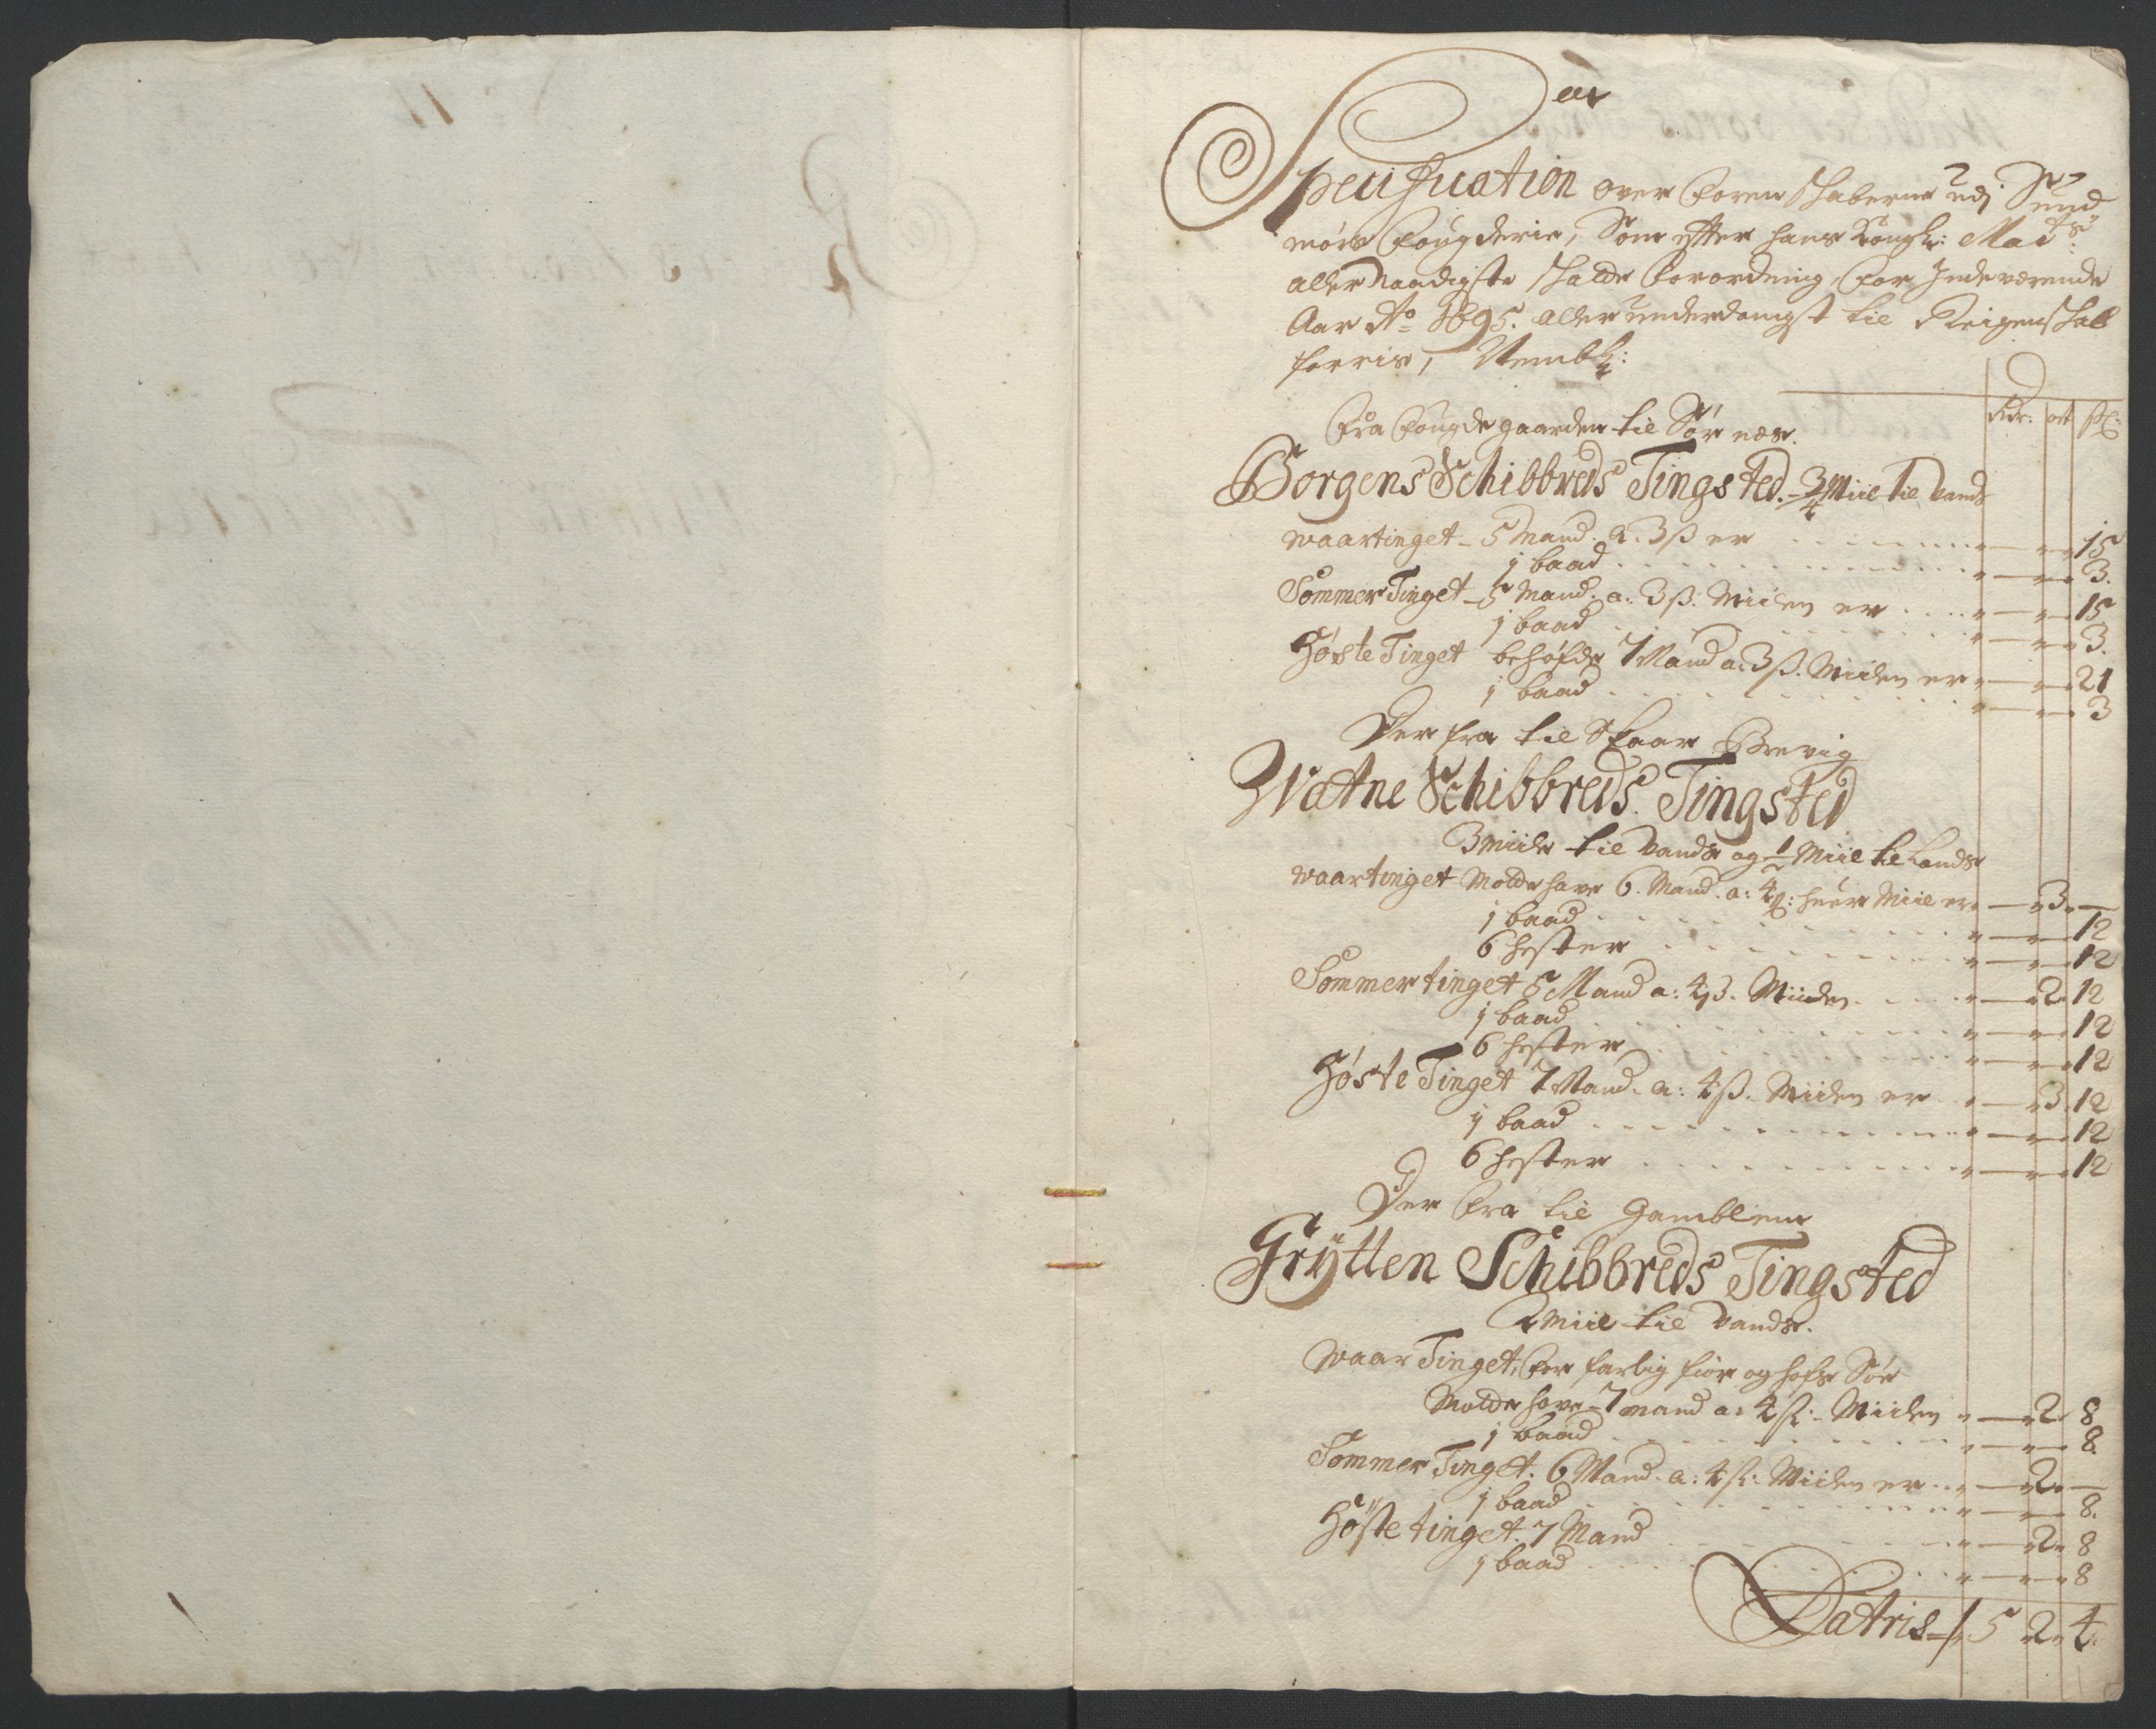 Specification over forenskaberne udj Sund
mørs fougderie, Som efter hans Kongl: Mai:ts
aller Naadigste skatte forordning, for Indeværende
Aar Ao 1695. aller underdanigst til Reigenskab
førris, Nembl:
Rdr: ort ß:
fra fougde gaarden til Sør næs.
Borgens Schibbreds Tingsted. 3/4 Miil til vands
waartinget - 5 Mand. a. 3 ß er " " 15
1 baad " " 3.
Sommer Tinget - 5 Mand. a: 3 ß. Miilen er " " 15
1 baad " " 3.
Høste Tinget behøfde 7 Mand a: 3 ß. Miilen er " " 21
1 baad " " 3
Der fra til Skaar Brevig
Watne Schibbreds Tingsted
3 miile til vands og 1/2 Miil til Lands
waartinget Motte have 6. Mand. a: 4 ß: huer Miil er " 3 "
1 baad " " 12
6 hester " " 12
Sommertinget 5 Mand a: 4 ß. Miilen " 2 12
1 baad " " 12
6 hester " " 12
Høste Tinget 7 Mand. a: 4 ß. Miilen er " 3 12
1 baad " " 12
6 hester " " 12
Der fra til Gamblem
Grytten Schibbreds Tingsted
2 Miil til vands.
Waar Tinget, for farlig fiør og hofs Sør
Motte have 7 mand a: 4 ß: Miilen " 2 8
1 baad " " 8.
Sommer Tinget. 6 Mand. a: 4 ß: Miilen er " 2 "
1 baad " " 8.
Høste tinget. 7 Mand " 2 8
1 baad " " 8
Latris / 5 2 4.